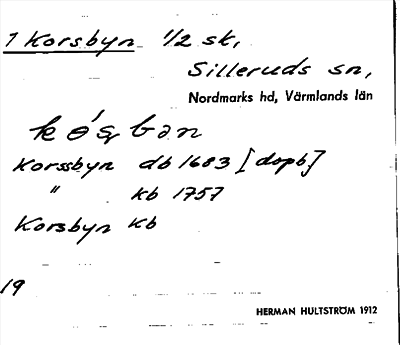 1 Korsbyn 1/2 sk,
Silleruds sn,
Nordmarks hd, Värmlands län
Korssbyn db 1683 [dopb]
" kb 1757
Korsbyn kb
19
HERMAN HULTSTRÖM 1912